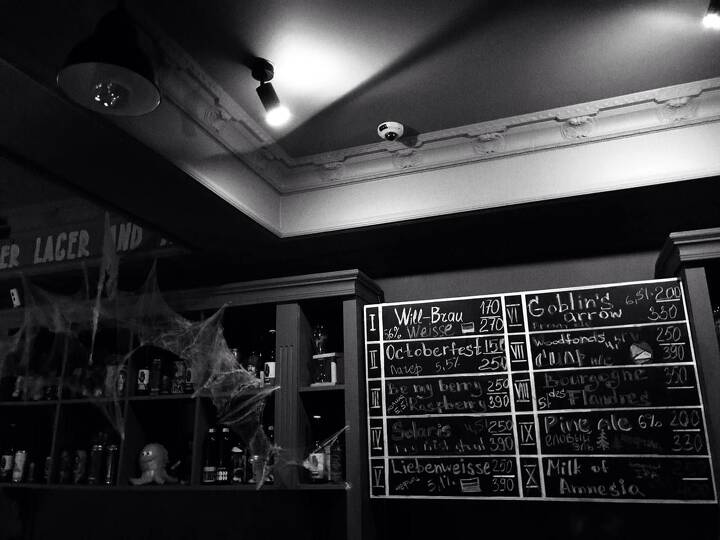 ER LAGER AND
I Will-Brau 170
5,6% Weisse 270
II Octoberfest 150
лагер 5,5% 250
III Be my berry 250
Raspberry 390
IV Solaris 250
390
V Liebenweisse 250
5,1% 390
VI Goblin's 6,5% 200
arrow 350
VII Woodfords 250
390
VIII Bourgogne 350
des
Flandres
IX Pine Ale 6% 200
330
X Milk of
Amnesia